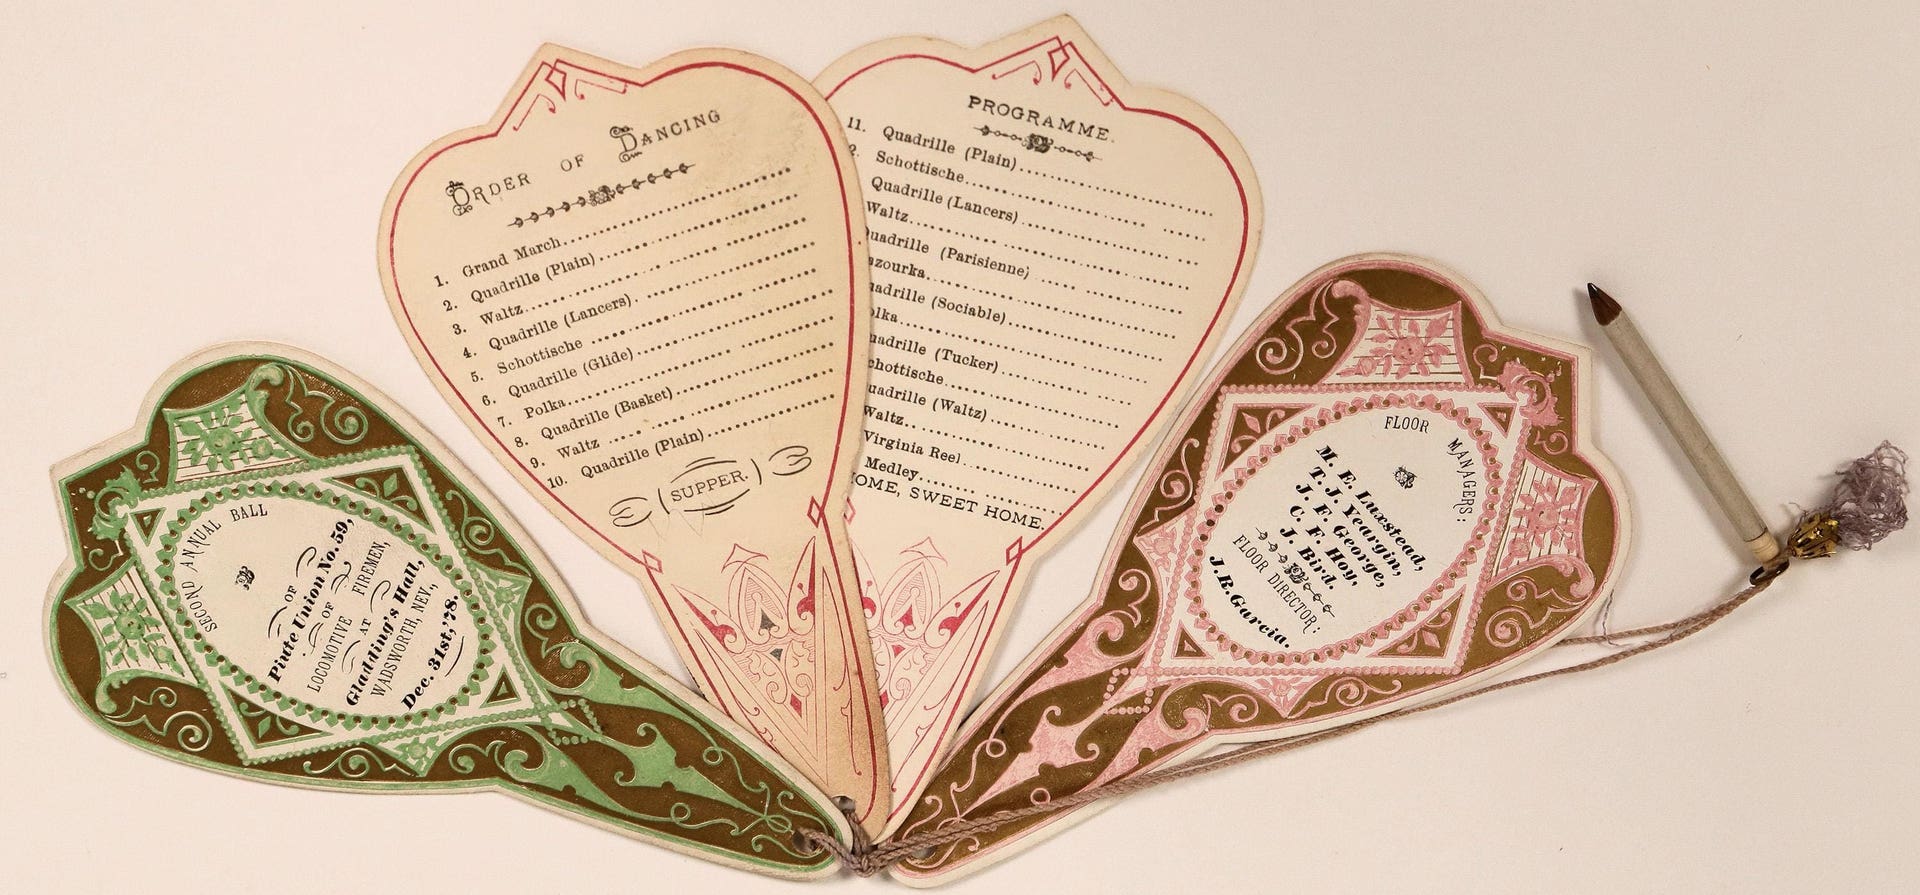 SECOND ANNUAL BALL
OF
Piute Union No. 59,
OF
LOCOMOTIVE FIREMEN,
AT
Gladding's Hall,
WADSWORTH, NEV.,
Dec. 31st, '78.
ORDER OF DANCING
1. Grand March
2. Quadrille (Plain)
3. Waltz
4. Quadrille (Lancers)
5. Schottische
6. Quadrille (Glide)
7. Polka
8. Quadrille (Basket)
9. Waltz
10. Quadrille (Plain)
SUPPER.
PROGRAMME.
11. Quadrille (Plain)
2. Schottische
Quadrille (Lancers)
Waltz
uadrille (Parisienne)
azourka
uadrille (Sociable)
olka
uadrille (Tucker)
chottische
uadrille (Waltz)
Waltz
Virginia Reel
Medley
OME, SWEET HOME.
FLOOR MANAGERS:
M. E. Luxstead,
T. J. Yeargin,
J. F. George,
C. F. Hoy,
J. Bird.
FLOOR DIRECTOR:
J. R. Garcia.